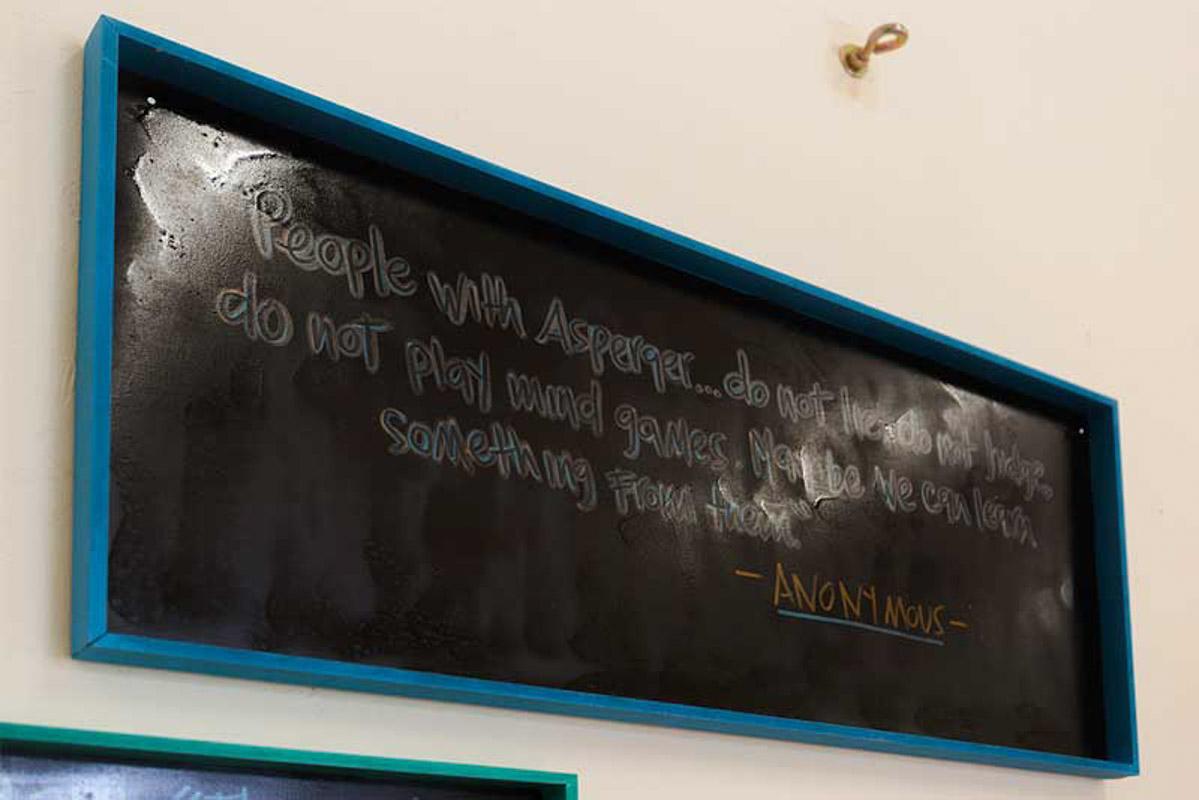 "People with Asperger... do not lie, do not judge,
do not play mind games. May be we can learn
something from them"
- ANONYMOUS -